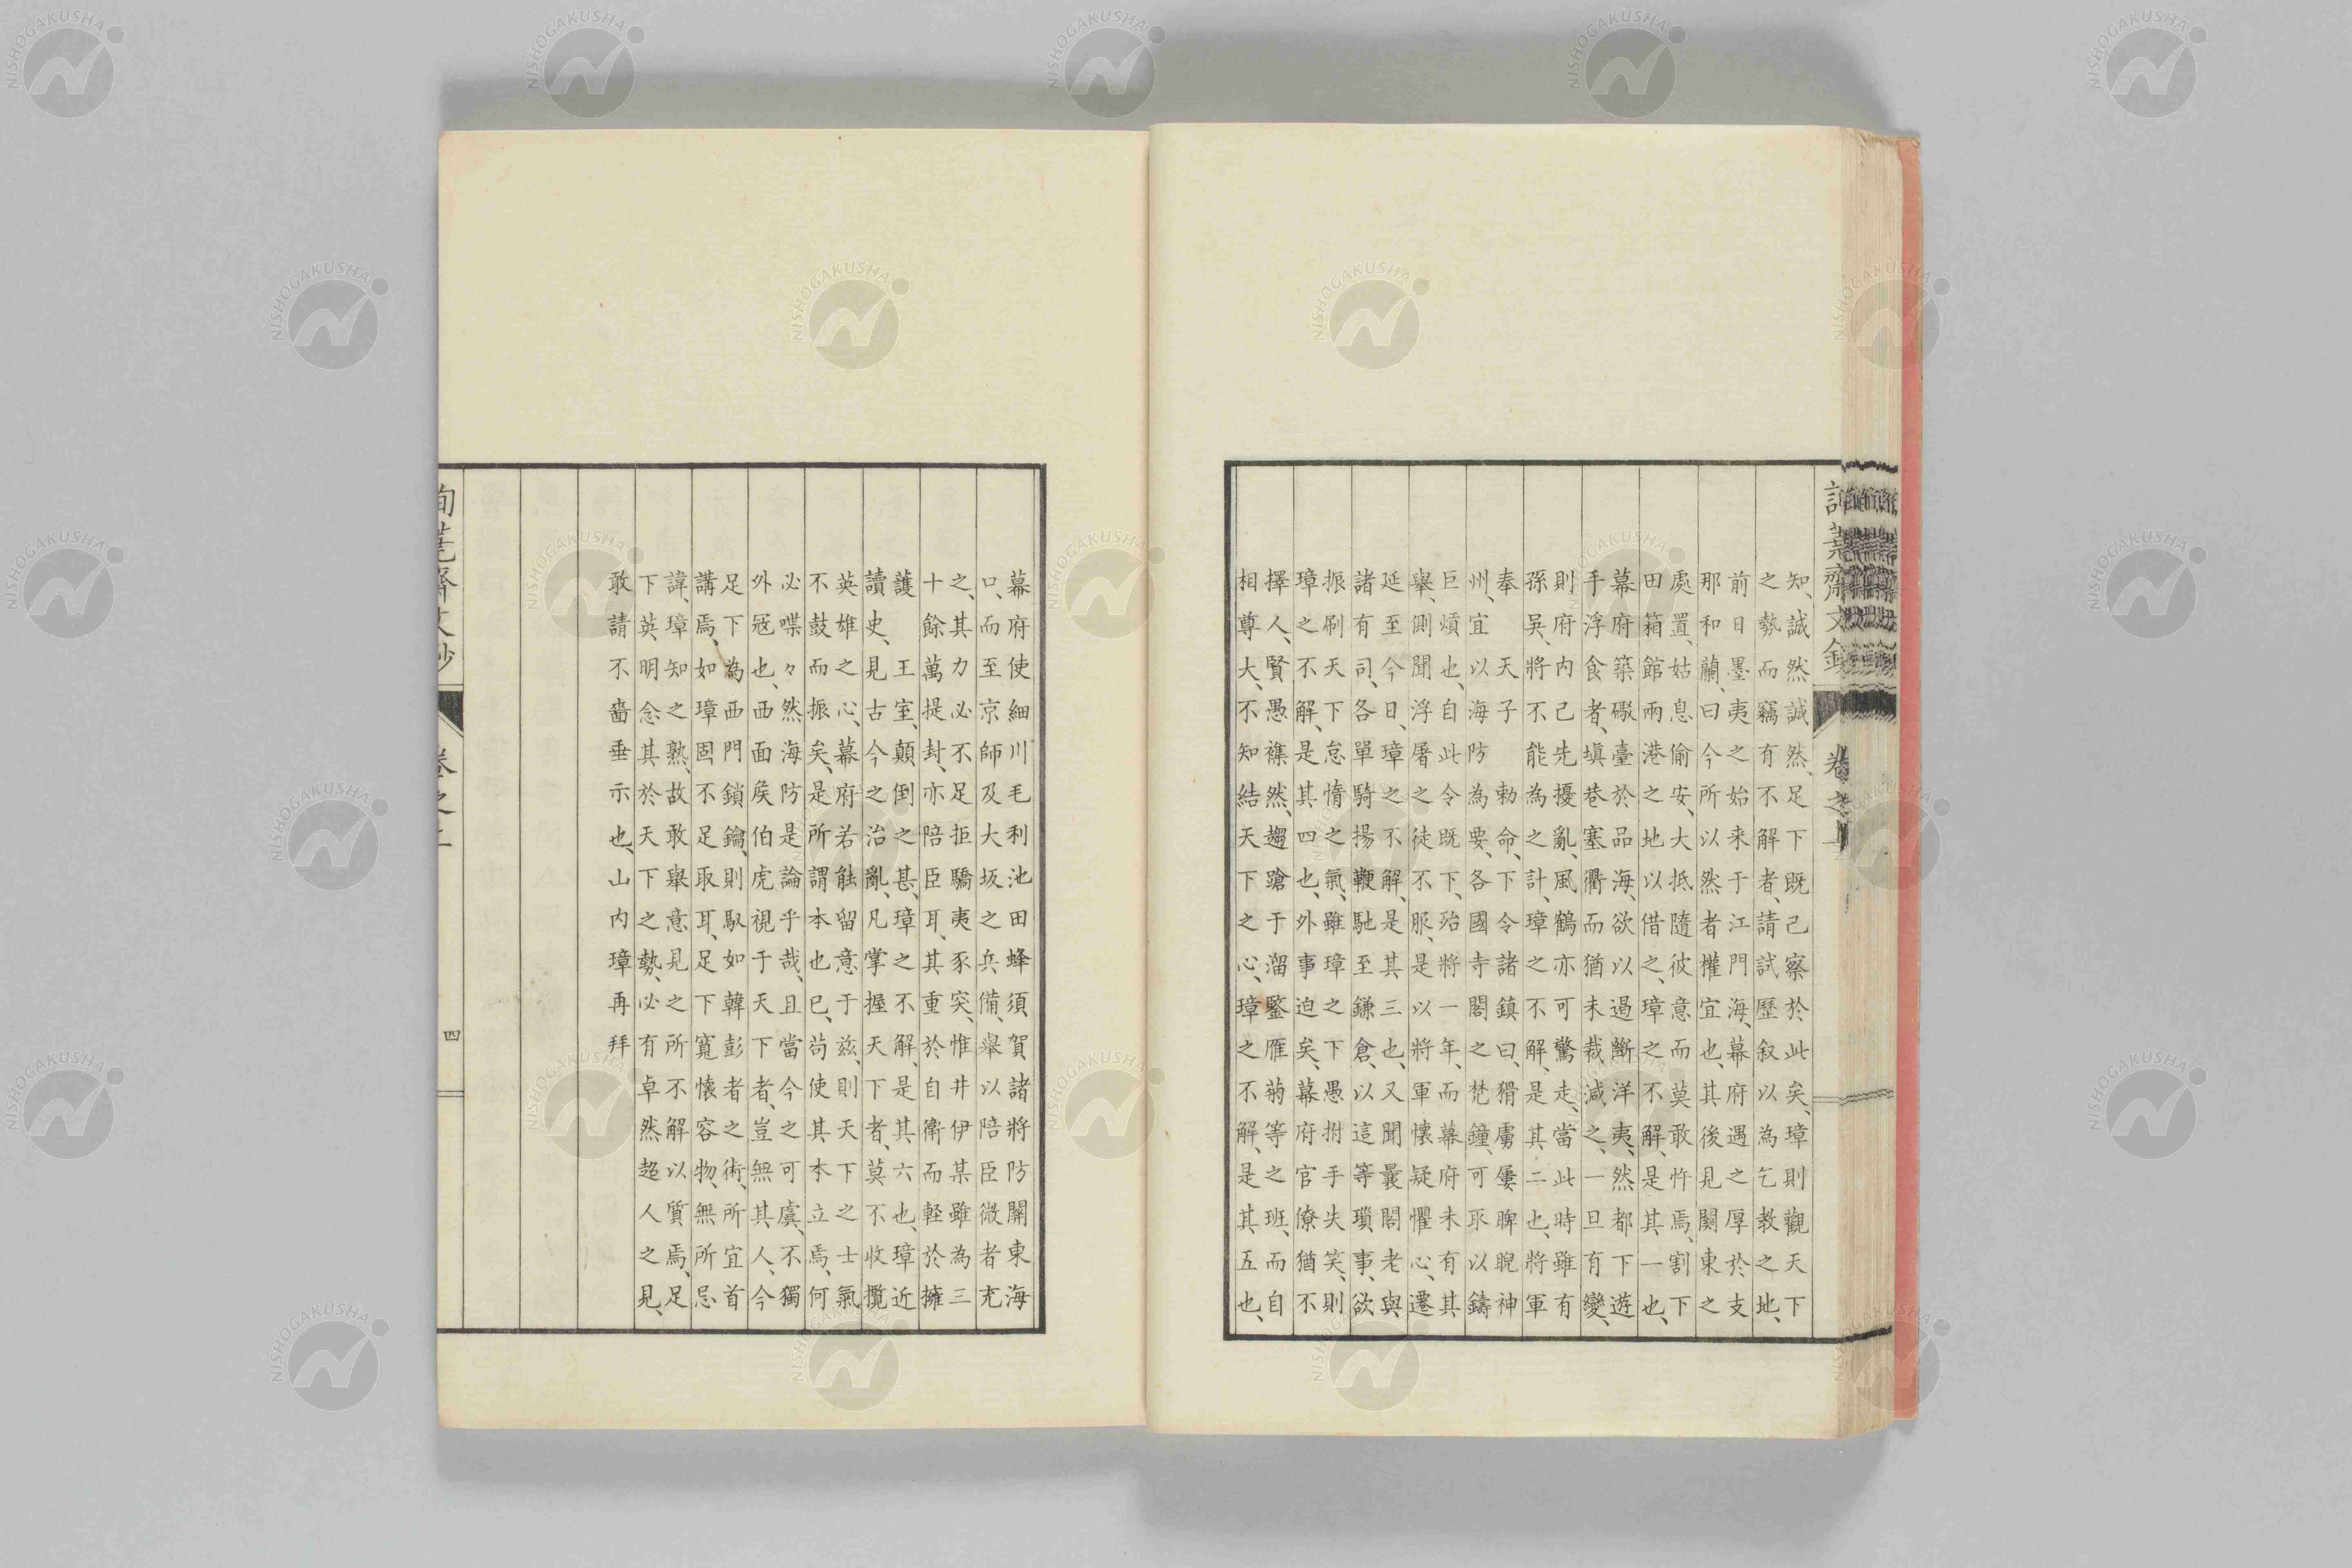 知、誠然誠然、足下既已察於此矣、璋則觀天下
之勢而竊有不解者、請試歷叙以為乞教之地、
前日墨夷之始来于江門海、幕府遇之厚於支
那和蘭、曰今所以然者權宜也、其後見關東之
處置、姑息偷安、大抵隨彼意而莫敢忤焉、割下
田箱館兩港之地以借之、璋之不解、是其一也、
幕府築礟臺於品海、欲以過斷洋夷、然都下遊
手浮食者、塡巷塞衢而猶未裁減之、一旦有變、
則府内己先擾亂、風鶴亦可驚走、當此時雖有
孫吳、將不能為之計、璋之不解、是其二也、將軍
奉天子勅命、下令諸鎮曰、猾虜屢睥睨神
州、宜以海防為要、各國寺閣之梵鐘、可取以鑄
巨熕也、自此令既下、殆將一年、而幕府未有其
舉、側聞浮屠之徒不服、是以將軍懷疑懼心、遷
延至今日、璋之不解、是其三也、又聞曩閣老與
諸有司、各單騎揚鞭馳至鎌倉、以這等瑣事、欲
振刷天下怠惰之氣、雖璋之下愚拊手失笑、則
璋之不解、是其四也、外事迫矣、幕府官僚猶不
擇人、賢愚襍然、趨蹌于溜鑒雁菊等之班、而自
相尊大、不知結天下之心、璋之不解、是其五也、
幕府使細川毛利池田蜂須賀諸將防關東海
口、而至京師及大坂之兵備、舉以陪臣微者充
之、其力必不足拒驕夷豕突、惟井伊某雖為三
十餘萬提封、亦陪臣耳、其重於自衛而軽於擁
護王室、顛倒之甚、璋之不解、是其六也、璋近
讀史、見古今之治亂、凡掌握天下者、莫不收攬
英雄之心、幕府若能留意于兹、則天下之士氣
不鼓而振矣、是所謂本也已、苟使其本立焉、何
必喋々然海防是論乎哉、且當今之可虞、不獨
外冦也、西面矦伯虎視于天下者、豈無其人、今
足下為西門鎖鑰、則馭如韓彭者之術、所宜首
講焉、如璋固不足取耳、足下寬懷容物、無所忌
諱、璋知之熟、故敢舉意見之所不解以質焉、足
下英明念其於天下之勢、必有卓然超人之見、
敢請不嗇垂示也、山内璋再拜
卷之上
四